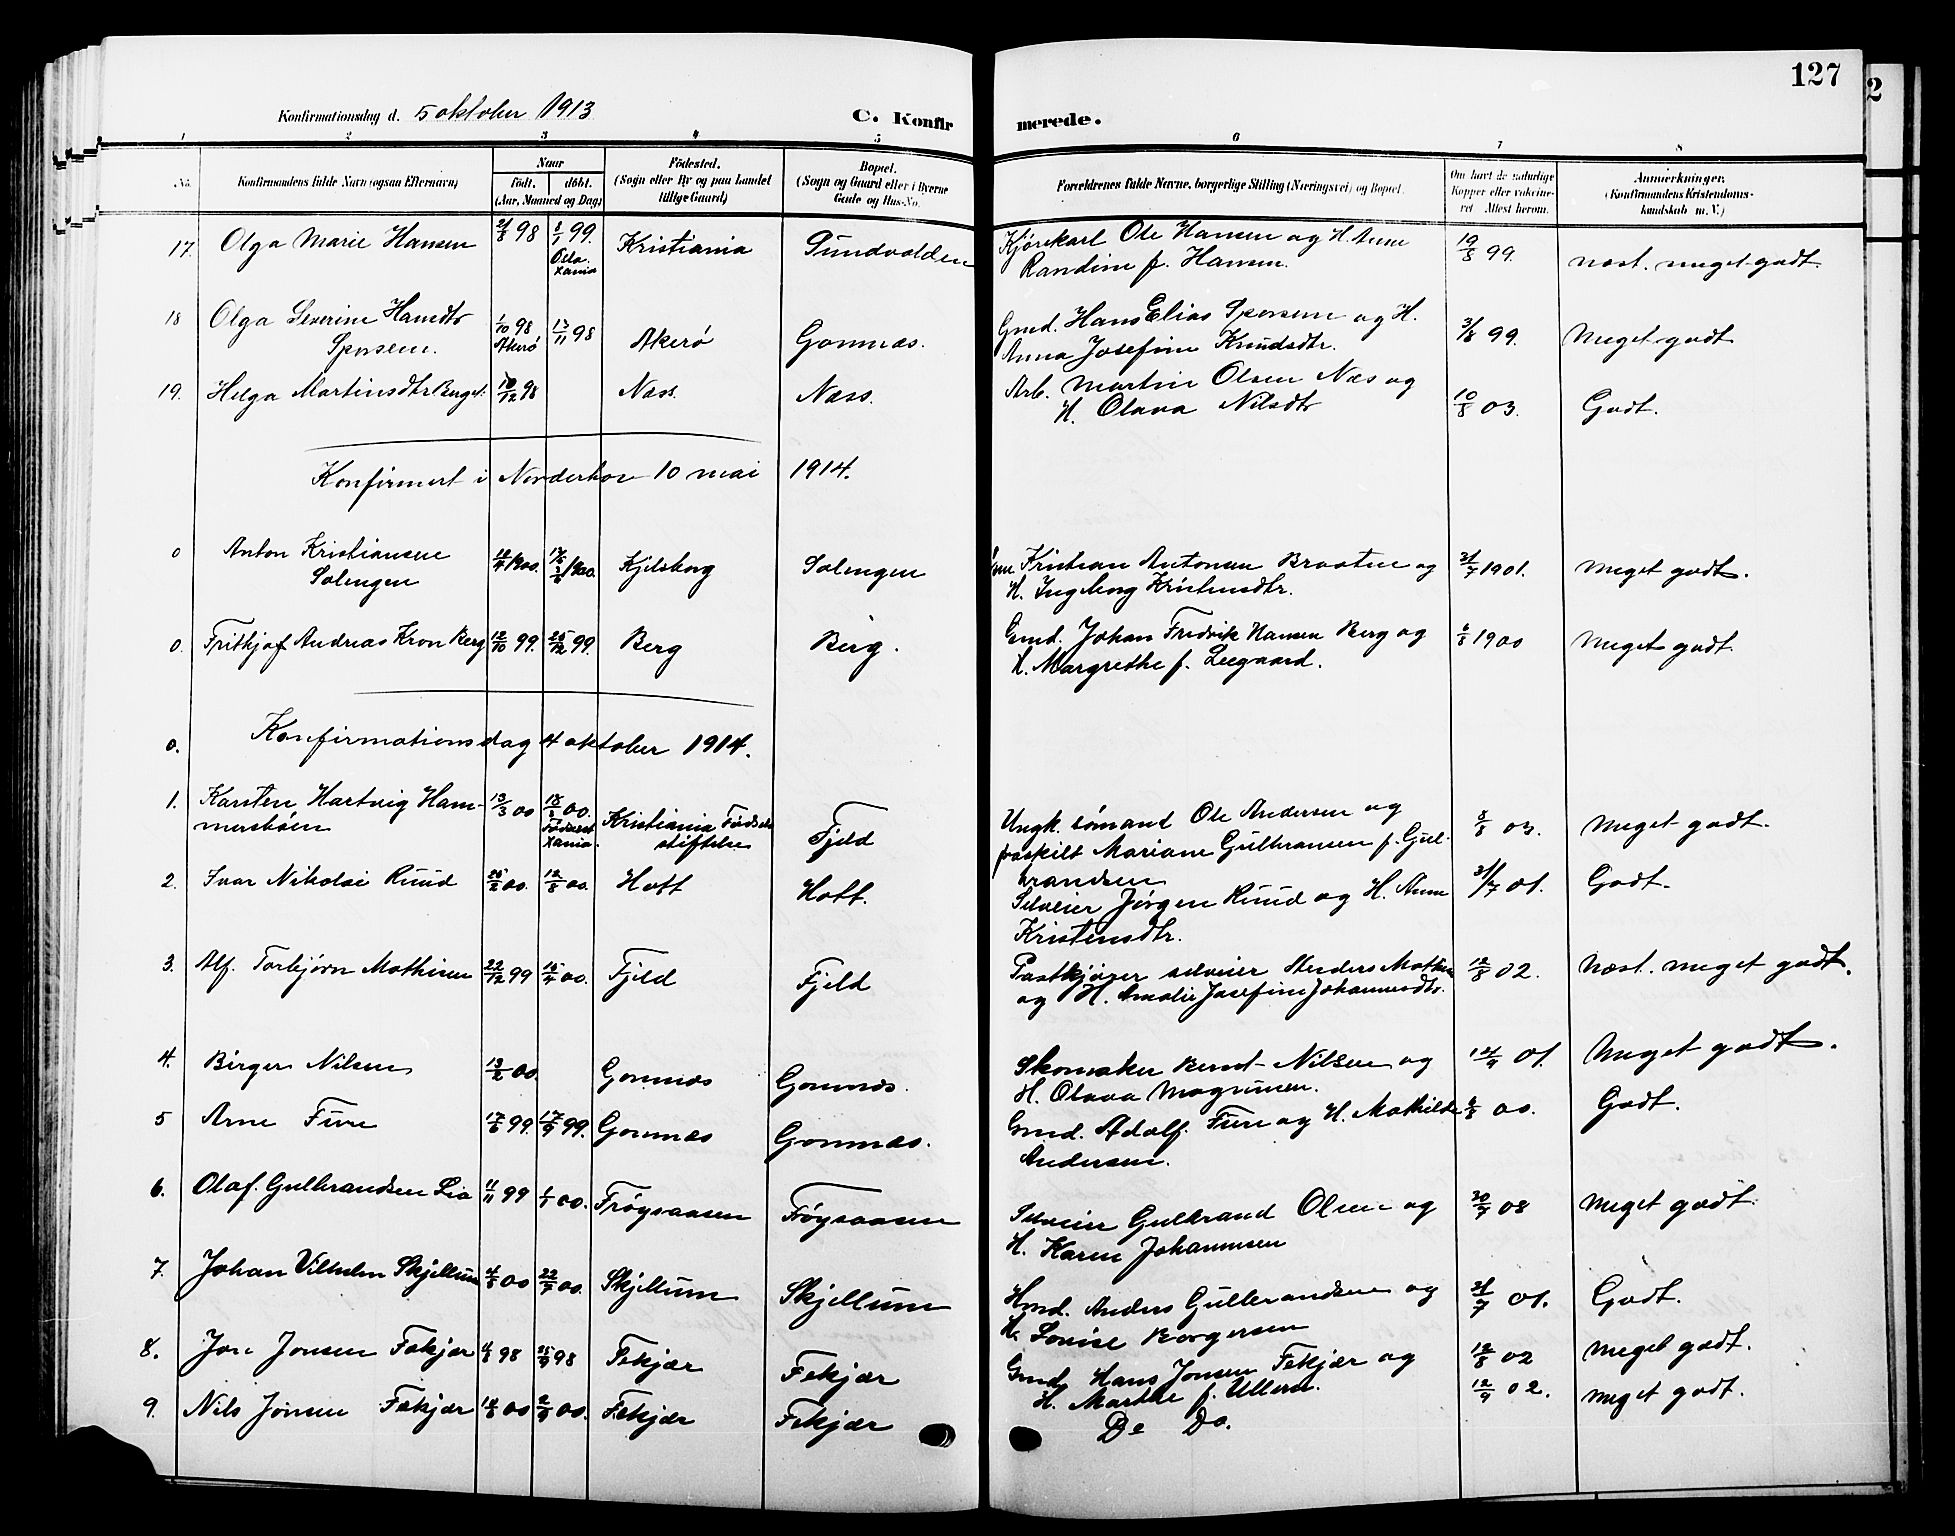 127
2
Konfirmationsdag d. 5 oktober 1913
C. Konfirmerede.
1 2 3 4 5 6 7 8
No.
Konfirmandens fulde Navn (ogsaa Efternavn)
Naar
født. døbt.
(Aar, Maaned og Dag)
Fødested.
(Sogn eller By og paa Landet
tillige Gaard)
Bopæl.
(Sogn og Gaard eller i Byerne
Gade og Hus-No.
Forældrenes fulde Navne, borgerlige Stilling (Næringsvei) og Bopæl.
Om havt de naturlige
Kopper eller vaccine-
ret Attest herom.
Anmærkninger.
(Konfirmandens Kristendoms-
kundskab m. V.)
17. Olga Marie Hansen 98 99. Kristiania Sundvolden Kjørekarl Ole Hansen og H. Anne 19/8 99. næst. meget godt.
Oslo
Xania
Randine f. Hansen.
18 Olga Severine Hansdtr 1/10 98 13/11 98 Akerø Gomnæs. Gmd. Hans Elias Spersen og H. 3/8 99. Meget godt
Spersen. Akerø
Anna Josefine Knudsdtr.
19. Helga Martinsdtr 10/12 98 Næss. Næss. Arb. Martin Olsen Næs og 10/8 03. Godt.
H. Olava Nilsdtr
Konfirmert i Norderhov 10 mai 1914.
0 Anton Kristiansen 1900. 1900. Kjelsborg Solengen Kristian Antonsen Braaten og 31/7 1901. Meget godt.
Solengen
H. Ingeborg Kristensdtr.
0. Fritkjof Andreas Kron Berg 12/10 99. 26/12 99. Berg Berg. Gmd. Johan Fredrik Hansen Berg og 1900 Meget godt.
H. Margrethe f. Leegaard.
0. Konfirmationsdag 4 oktober 1914.
1. Karsten Hartvig Ham- 13/3 00 18/3 00. Kristiania Fødsels Fjeld Ungk. sømand Ole Andersen og 8/8 03. Meget godt.
mersbøen
Fødselst
Xania.
stiftelse
fraskilt Mariane Gulbransen f. Gul-
brandsen
2. Ivar Nikolai Ruud 25/2 00. 12/8 00. Hoff Hoff. Selveier Jørgen Ruud og H. Anne 31/7 01. Godt.
Kristensdtr.
3. Alf. Torbjørn Mathisen 22/12 99 15/4 00. Fjeld Fjeld Postkjører selveier 12/8 02. Næst. meget godt.
og H. Amalie Josefine Johannesdtr.
4. Birger Nilsen 13/2 00. Gomnæs Gomnæs. Skomaker Bernt Nilsen og 01. Meget godt.
H. Olava Magnusen.
5 Arne Fure 17/6 99. 17/9 99. Gomnæs Gomnæs. Gmd. Adolf Fure og H. Mathilde 00. Godt.
Andersen.
6. Olaf. Gulbrandsen Lia 11/11 99 1/1 00. Frøysaasen Frøysaasen Selveier Gulbrand Olsen og 30/7 08 Meget godt.
H. Karen Johannesen
7. Johan Vilhelm Skjellum 4/6 00 22/7 00. Skjellum Skjellum Hmd. Anders Gulbrandsen og 31/7 01. Godt.
H. Louise Borgersen
8. Jon Jonsen Fekjær 98 25/9 98 Fekjær Fekjær Gmd. Hans Jonsen Fekjær og 12/8 02 Meget godt.
H. Marthe f. Ullern.
9. Nils Jonsen Fekjær 00 00. Fekjær Fekjær De Do. 12/9 02. Meget godt.